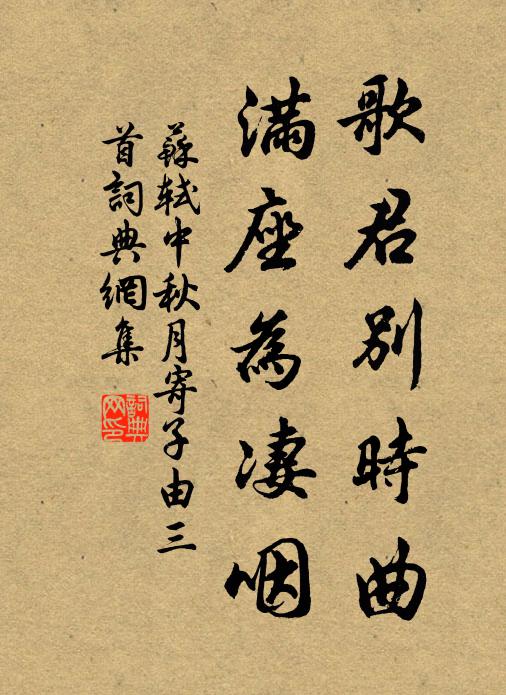 歌君別時曲
滿座為凄咽
蘇軾中秋月寄子由三
首詞典網集
詞典
网印